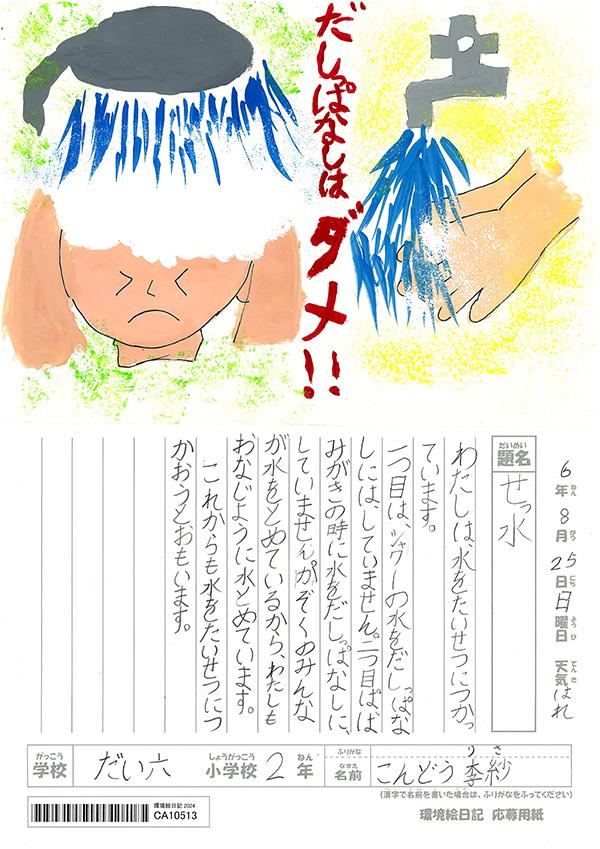 だしっぱなしはダメ!!
6年8月25日日曜日 天気はれ
ねん がつ にち ようび てんき
だいめい
題名 せっ水
わたしは水をたいせつにつかっ
ています。
一つ目は、シャワーの水をだしっぱな
しには、していません。二つ目は、は
みがきの時に水をだしっぱなしに、
していません。かぞくのみんな
が水をとめているから、わたしも
おなじように水とめています。
これからも水をたいせつにつ
かおうとおもいます。
がっこう しょうがっこう ねん ふりがな
なまえ り さ
学校 だい六 小学校 2年 名前 こんどう李紗
(漢字で名前を書いた場合は、ふりがなをふってください)
環境絵日記 2024
CA10513
環境絵日記 応募用紙